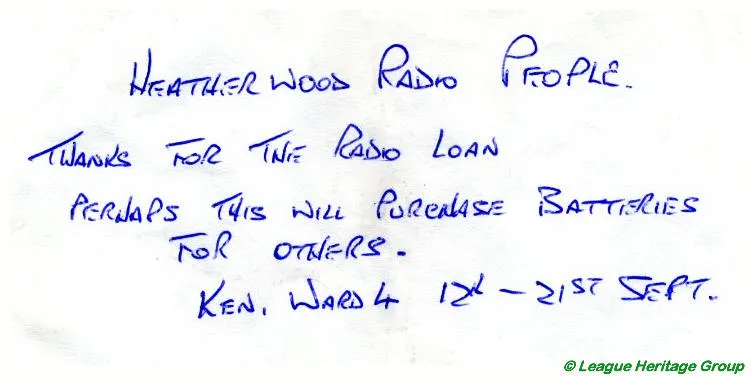 HEATHERWOOD RADIO PEOPLE.
THANKS FOR THE RADIO LOAN
PERHAPS THIS WILL PURCHASE BATTERIES
FOR OTHERS.
KEN. WARD 4 12th – 21ST SEPT.
© League Heritage Group